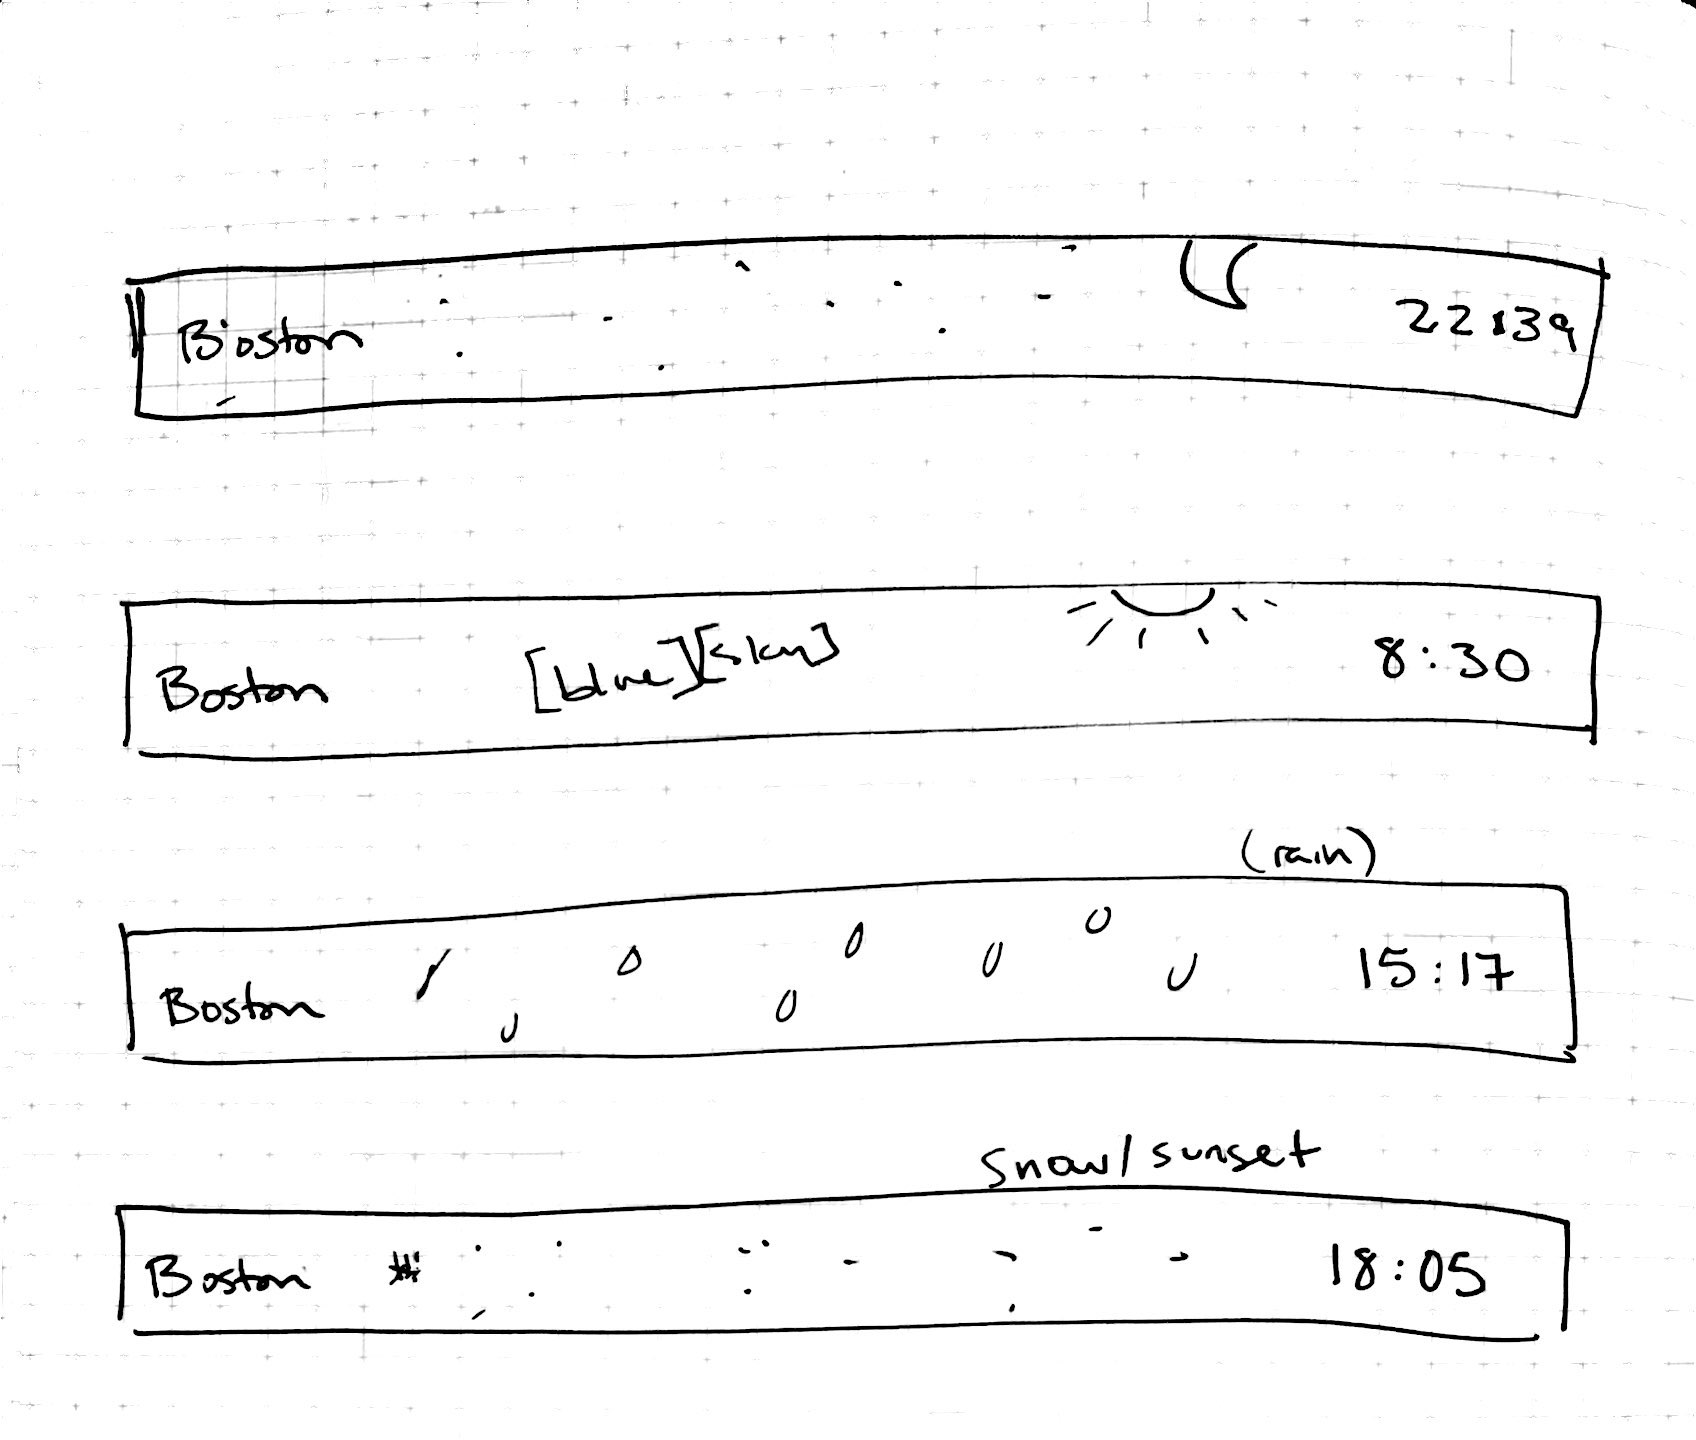 Boston 22:39
Boston [blue][sky] 8:30
(rain)
Boston 15:17
Snow/sunset
Boston 18:05